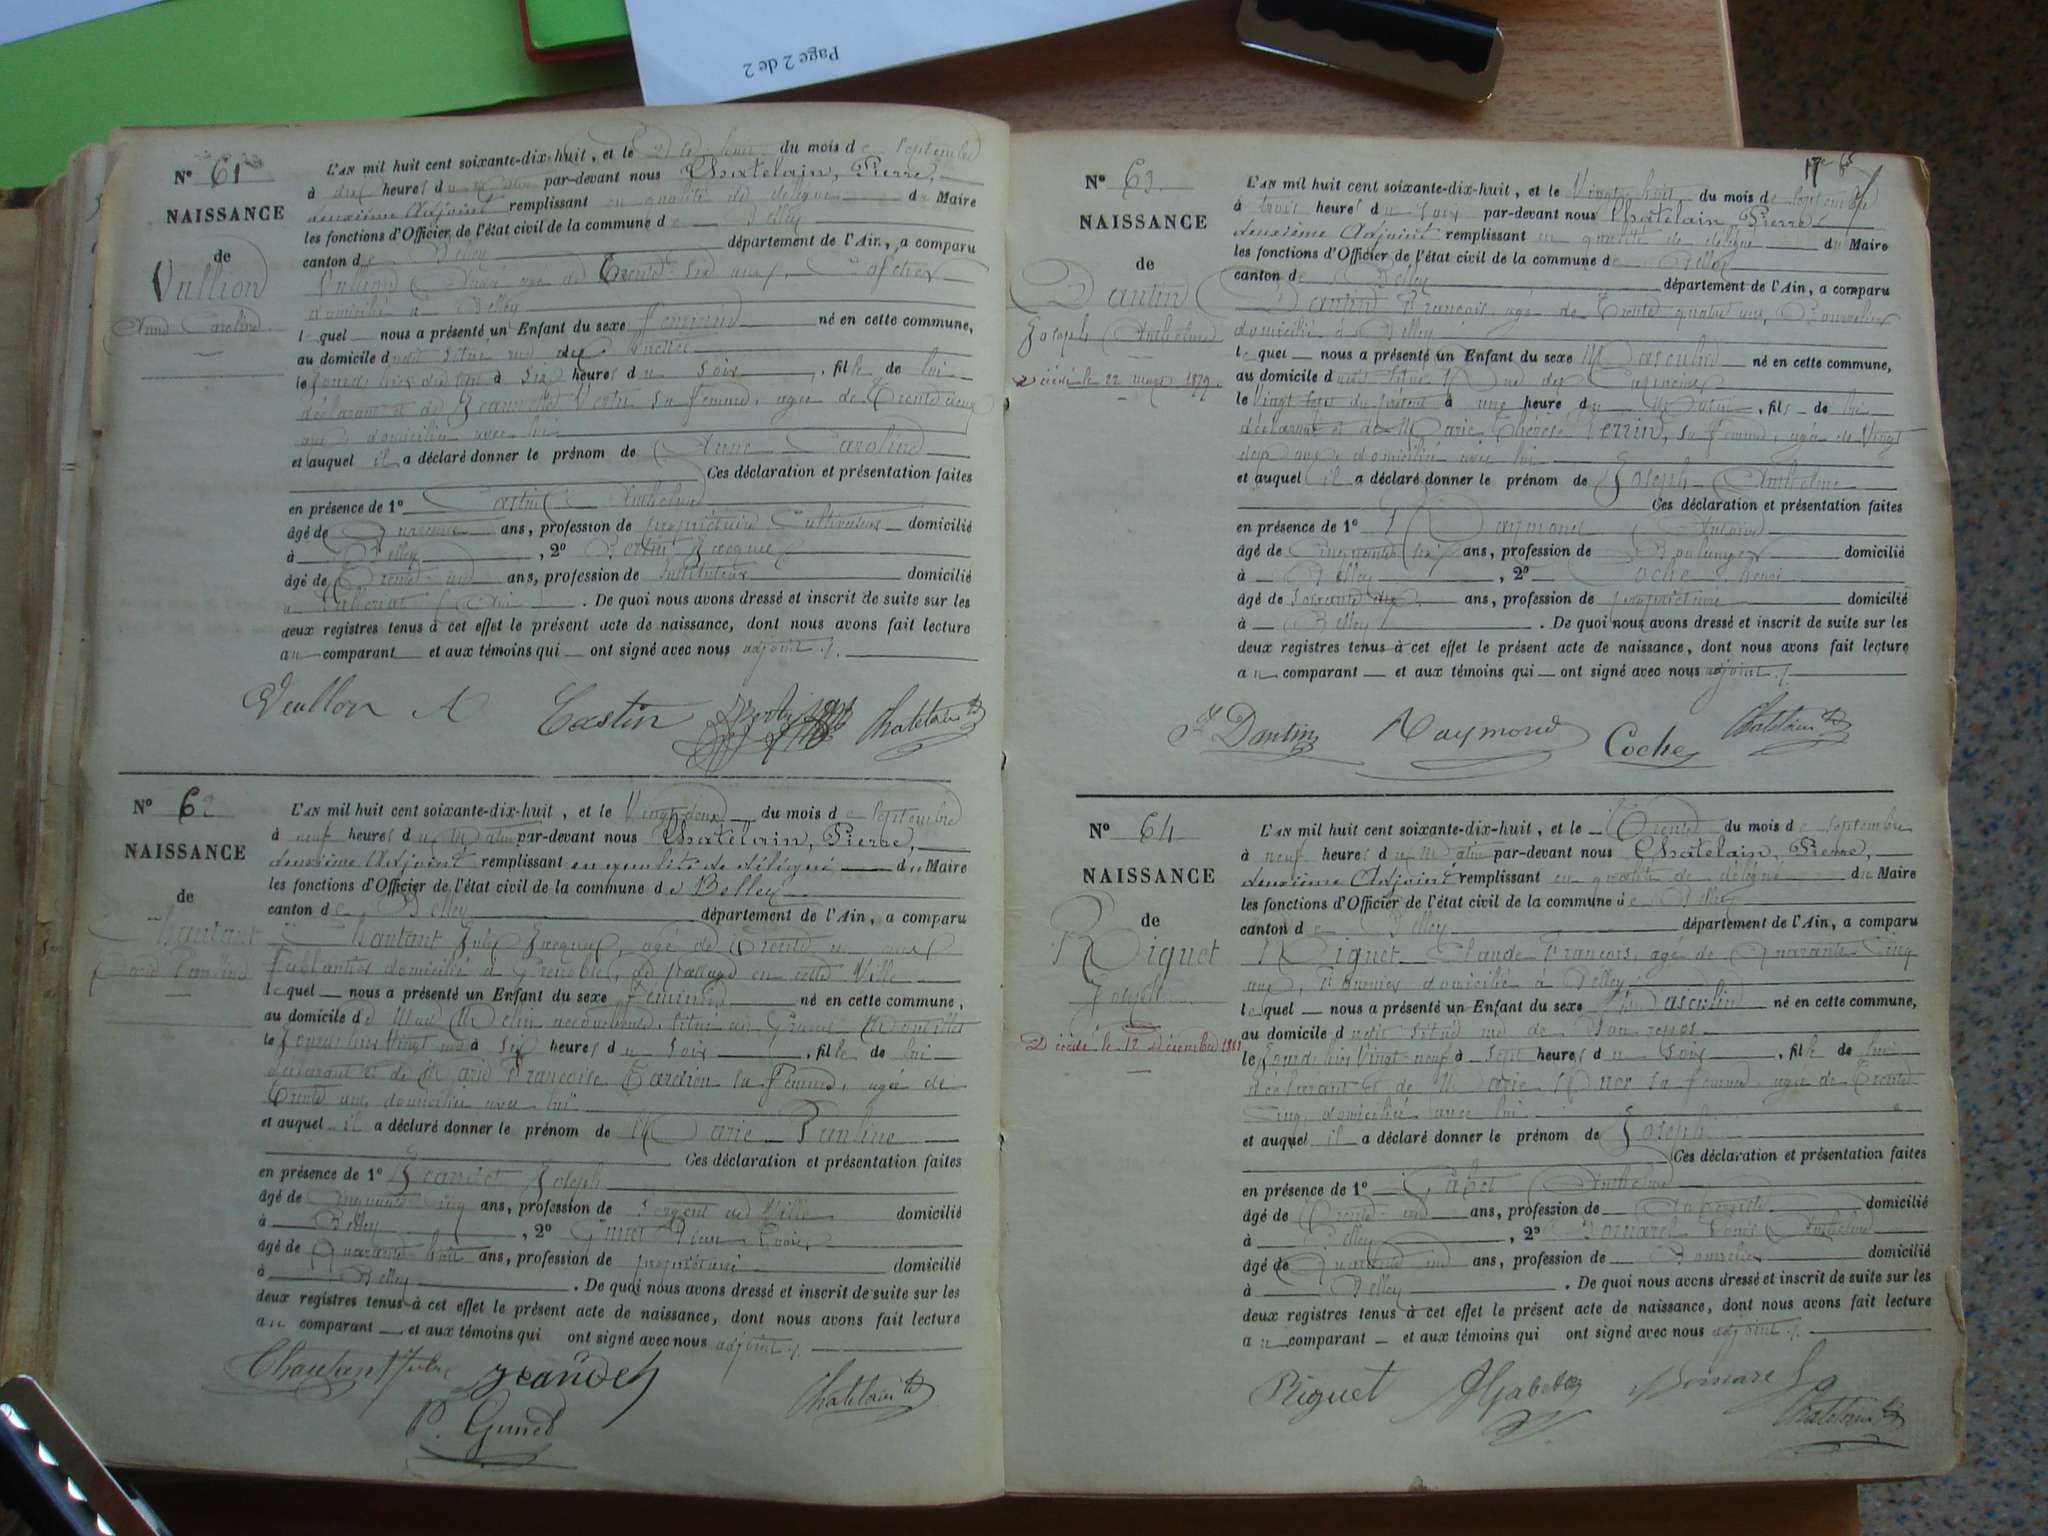 Page 2 de 2
N° 61
NAISSANCE
de
Vullion
Caroline
L'AN mil huit cent soixante-dix-huit, et le du mois de Septembre
à dix heures du par-devant nous Chatelain, Pierre,
deuxième Adjoint remplissant en qualité de délégué du Maire
les fonctions d'Officier de l'état civil de la commune de Belley
canton de Belley département de l'Ain, a comparu
âgé de Trente six ans,
domicilié à Belley
lequel nous a présenté un Enfant du sexe féminin né en cette commune,
au domicile
le à six heures du soir, fille de lui
déclarant et de sa femme, agée de Trente deux
ans domiciliée avec lui
et auquel il a déclaré donner le prénom de Anne Caroline
Ces déclaration et présentation faites
en présence de 1° Castin Anthelme
âgé de ans, profession de propriétaire Cultivateur domicilié
à Belley, 2° Bertin Jacques
âgé de Trente ans, profession de Instituteur domicilié
à (Ain). De quoi nous avons dressé et inscrit de suite sur les
deux registres tenus à cet effet le présent acte de naissance, dont nous avons fait lecture
au comparant et aux témoins qui ont signé avec nous adjoint
Castin Chatelain
N° 62
NAISSANCE
de
Chautant
Pauline
L'AN mil huit cent soixante-dix-huit, et le Vingt deux du mois de Septembre
à neuf heures du Matin par-devant nous Chatelain, Pierre,
deuxième Adjoint remplissant en qualité de délégué du Maire
les fonctions d'Officier de l'état civil de la commune de Belley
canton de Belley département de l'Ain, a comparu
Jules Jacques, agé de Trente un ans
ferblantier domicilié à Grenoble, de passage en cette Ville
lequel nous a présenté un Enfant du sexe féminin né en cette commune,
au domicile de situé
le à six heures du soir, fille de lui
déclarant et de Marie Françoise sa femme, agée de
Trente ans, domiciliée avec lui
et auquel il a déclaré donner le prénom de Marie Pauline
Ces déclaration et présentation faites
en présence de 1° Joseph
âgé de Cinquante cinq ans, profession de Sergent de Ville domicilié
à Belley, 2°
âgé de Quarante huit ans, profession de propriétaire domicilié
à Belley. De quoi nous avons dressé et inscrit de suite sur les
deux registres tenus à cet effet le présent acte de naissance, dont nous avons fait lecture
au comparant et aux témoins qui ont signé avec nous adjoint
Chatelain
N° 63
NAISSANCE
de
Dantin
Joseph Anthelme
Décédé le 22 mars 1879.
L'AN mil huit cent soixante-dix-huit, et le Vingt huit du mois de Septembre
à trois heures du soir par-devant nous Chatelain, Pierre,
deuxième Adjoint remplissant en qualité de délégué du Maire
les fonctions d'Officier de l'état civil de la commune de Belley
canton de Belley département de l'Ain, a comparu
Dantin François, agé de Trente quatre ans, Bourrelier
domicilié à Belley
lequel nous a présenté un Enfant du sexe Masculin né en cette commune,
au domicile situé Rue des
le Vingt du présent à une heure du Matin, fils de lui
déclarant et de Marie Thérèse Perrin, sa femme, agée de Vingt
ans domiciliée avec lui
et auquel il a déclaré donner le prénom de Joseph Anthelme
Ces déclaration et présentation faites
en présence de 1° Raymond Antoine
âgé de Cinquante six ans, profession de Boulanger domicilié
à Belley, 2° Coche
âgé de Soixante ans, profession de propriétaire domicilié
à Belley. De quoi nous avons dressé et inscrit de suite sur les
deux registres tenus à cet effet le présent acte de naissance, dont nous avons fait lecture
au comparant et aux témoins qui ont signé avec nous adjoint
Dantin Raymond Coche Chatelain
N° 64
NAISSANCE
de
Riguet
Joseph
Décédé le 12 Décembre 1881
L'AN mil huit cent soixante-dix-huit, et le Trente du mois de Septembre
à neuf heures du Matin par-devant nous Chatelain, Pierre,
deuxième Adjoint remplissant en qualité de délégué du Maire
les fonctions d'Officier de l'état civil de la commune de Belley
canton de Belley département de l'Ain, a comparu
Riguet Claude François, agé de Quarante Cinq
ans, domicilié à Belley
lequel nous a présenté un Enfant du sexe Masculin né en cette commune,
au domicile situé rue de
le Vingt-neuf à sept heures du soir, fils de lui
déclarant et de Marie sa femme, agée de Trente
Cinq, domiciliée avec lui
et auquel il a déclaré donner le prénom de Joseph
Ces déclaration et présentation faites
en présence de 1° Gabet Anthelme
âgé de Trente ans, profession de domicilié
à Belley, 2° Louis Anthelme
âgé de Quarante ans, profession de domicilié
à Belley. De quoi nous avons dressé et inscrit de suite sur les
deux registres tenus à cet effet le présent acte de naissance, dont nous avons fait lecture
au comparant et aux témoins qui ont signé avec nous adjoint
Riguet Chatelain